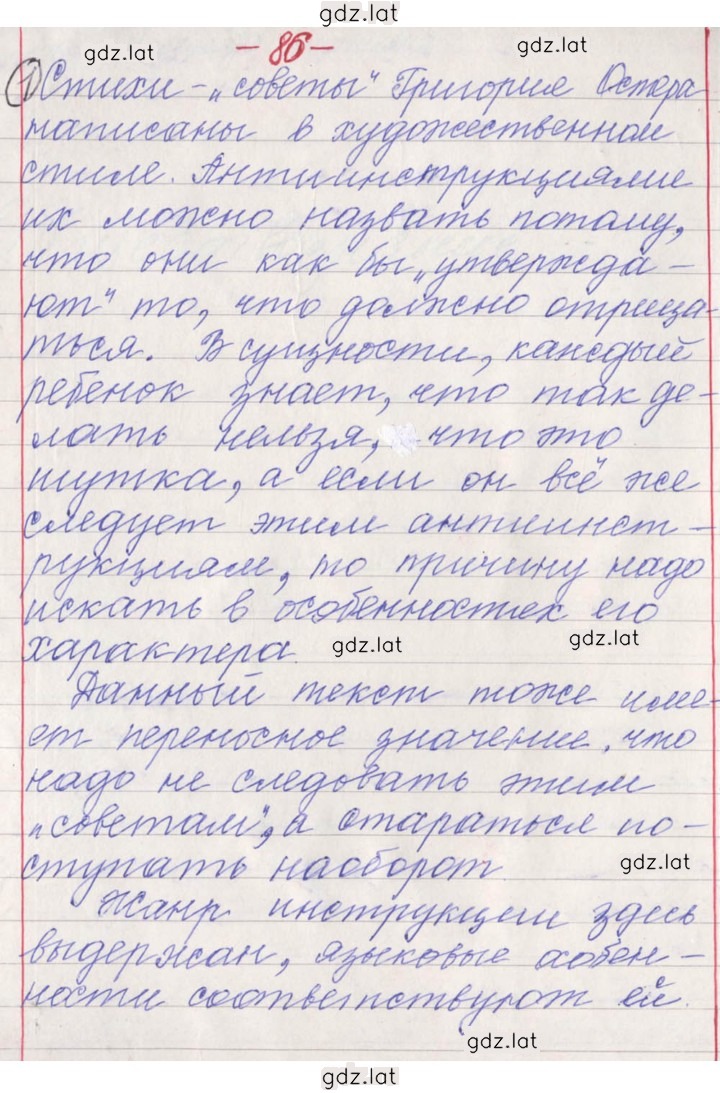 gdz.lat
gdz.lat
– 86 –
gdz.lat
1) Стихи – „советы" Григория Остера
написаны в художественном
стиле. Антиинструкциями
их можно назвать потому,
что они как бы „утвержда –
ют" то, что должно отрица-
ться. В сущности, каждый
ребенок знает, что так де-
лать нельзя, что это
шутка, а если он всё же
следует этим антиинст –
рукциям, то причину надо
искать в особенностех его
характера.
gdz.lat
gdz.lat
Данный текст тоже име-
ет переносное значение, что
надо не следовать этим
„советам", а стараться по –
ступать наоборот.
gdz.lat
Жанр инструкции здесь
выдержан, языковые особен –
ности соответствуют ей.
gdz.lat
gdz.lat